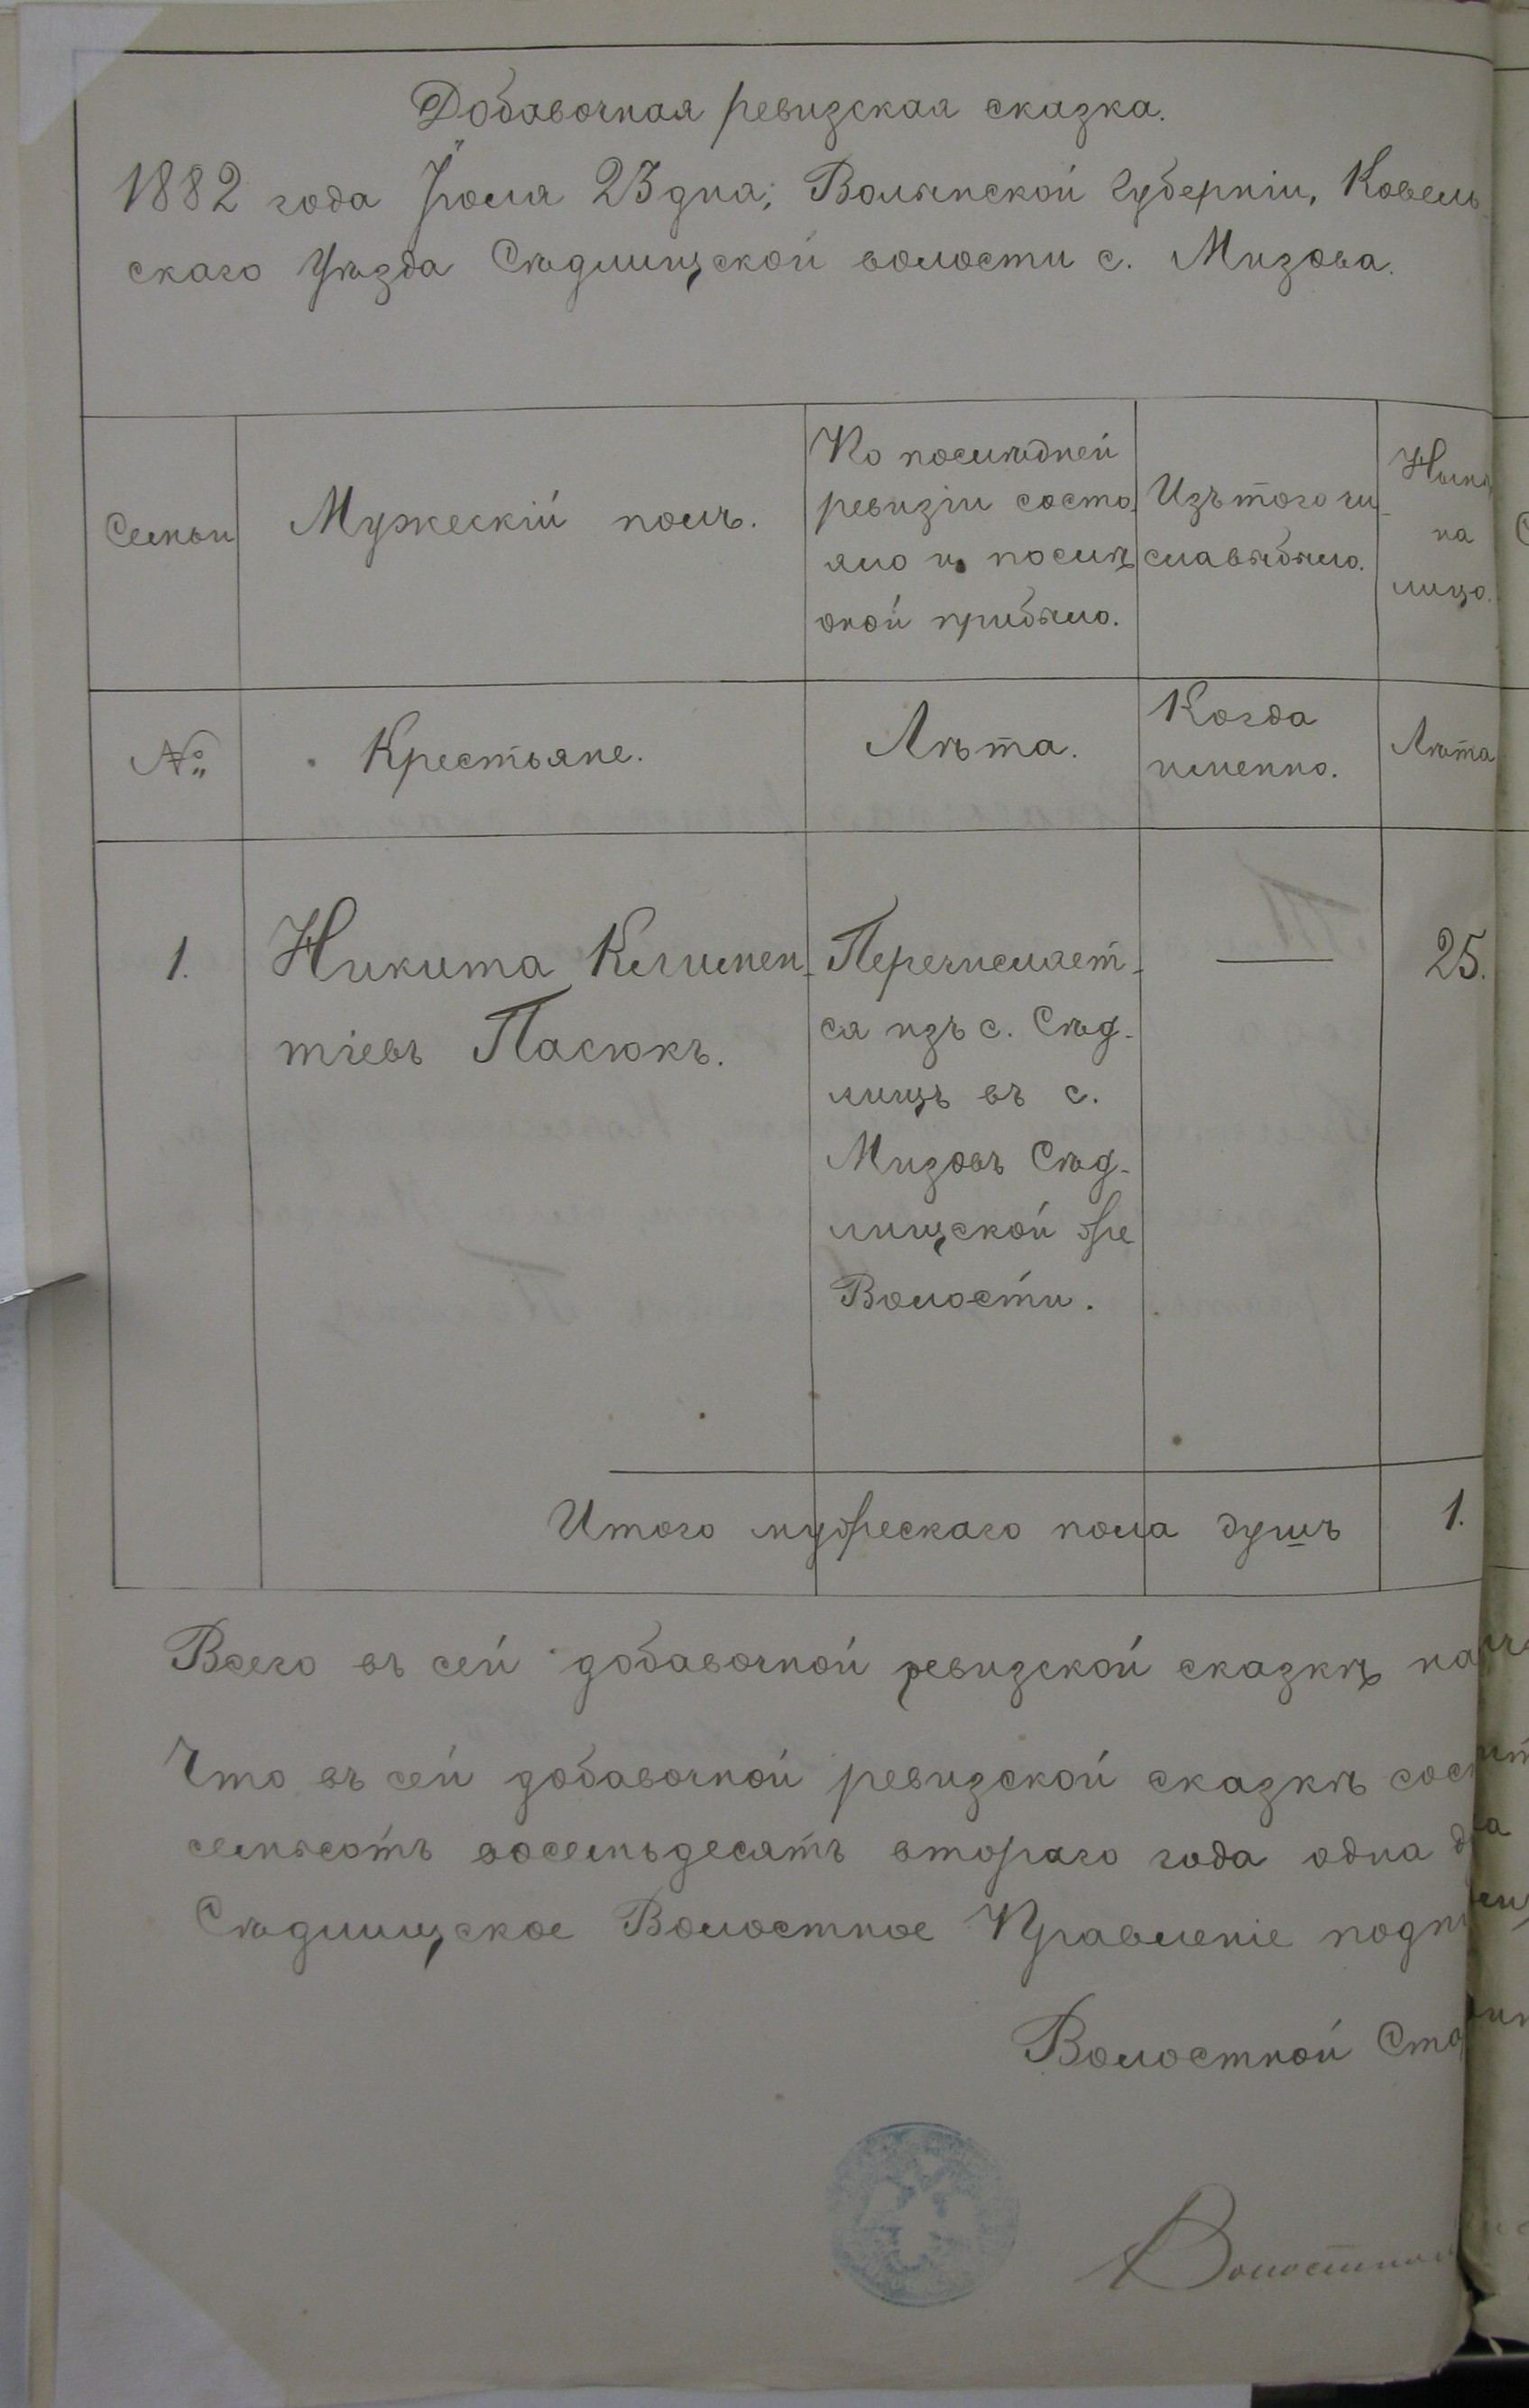 Добавочная ревизская сказка.
1882 года Іюля 23 дня; Волынской Губерніи, Ковель-
скаго Уѣзда Сѣдлищской волости с. Мизова.
Семьи
Мужескій полъ.
По послѣдней
ревизіи состо
яло и послѣ
оной прибыло.
Изъ того чи-
сла выбыло.
Нынѣ
на
лицо.
№
Крестьяне.
Лѣта.
Когда
именно.
Лѣта
1.
Никита Климен-
тіевъ Пасюкъ.
Перечисляет-
ся изъ с. Сѣд-
лищъ въ с.
Мизовъ Сѣд-
лищской же
Волости.
—
25.
Итого мужескаго пола душъ
1.
Всего въ сей добавочной ревизской сказкѣ
Что въ сей добавочной ревизской сказкѣ
семьсотъ восемьдесятъ втораго года одна
Сѣдлищское Волостное Правленіе
Волостной